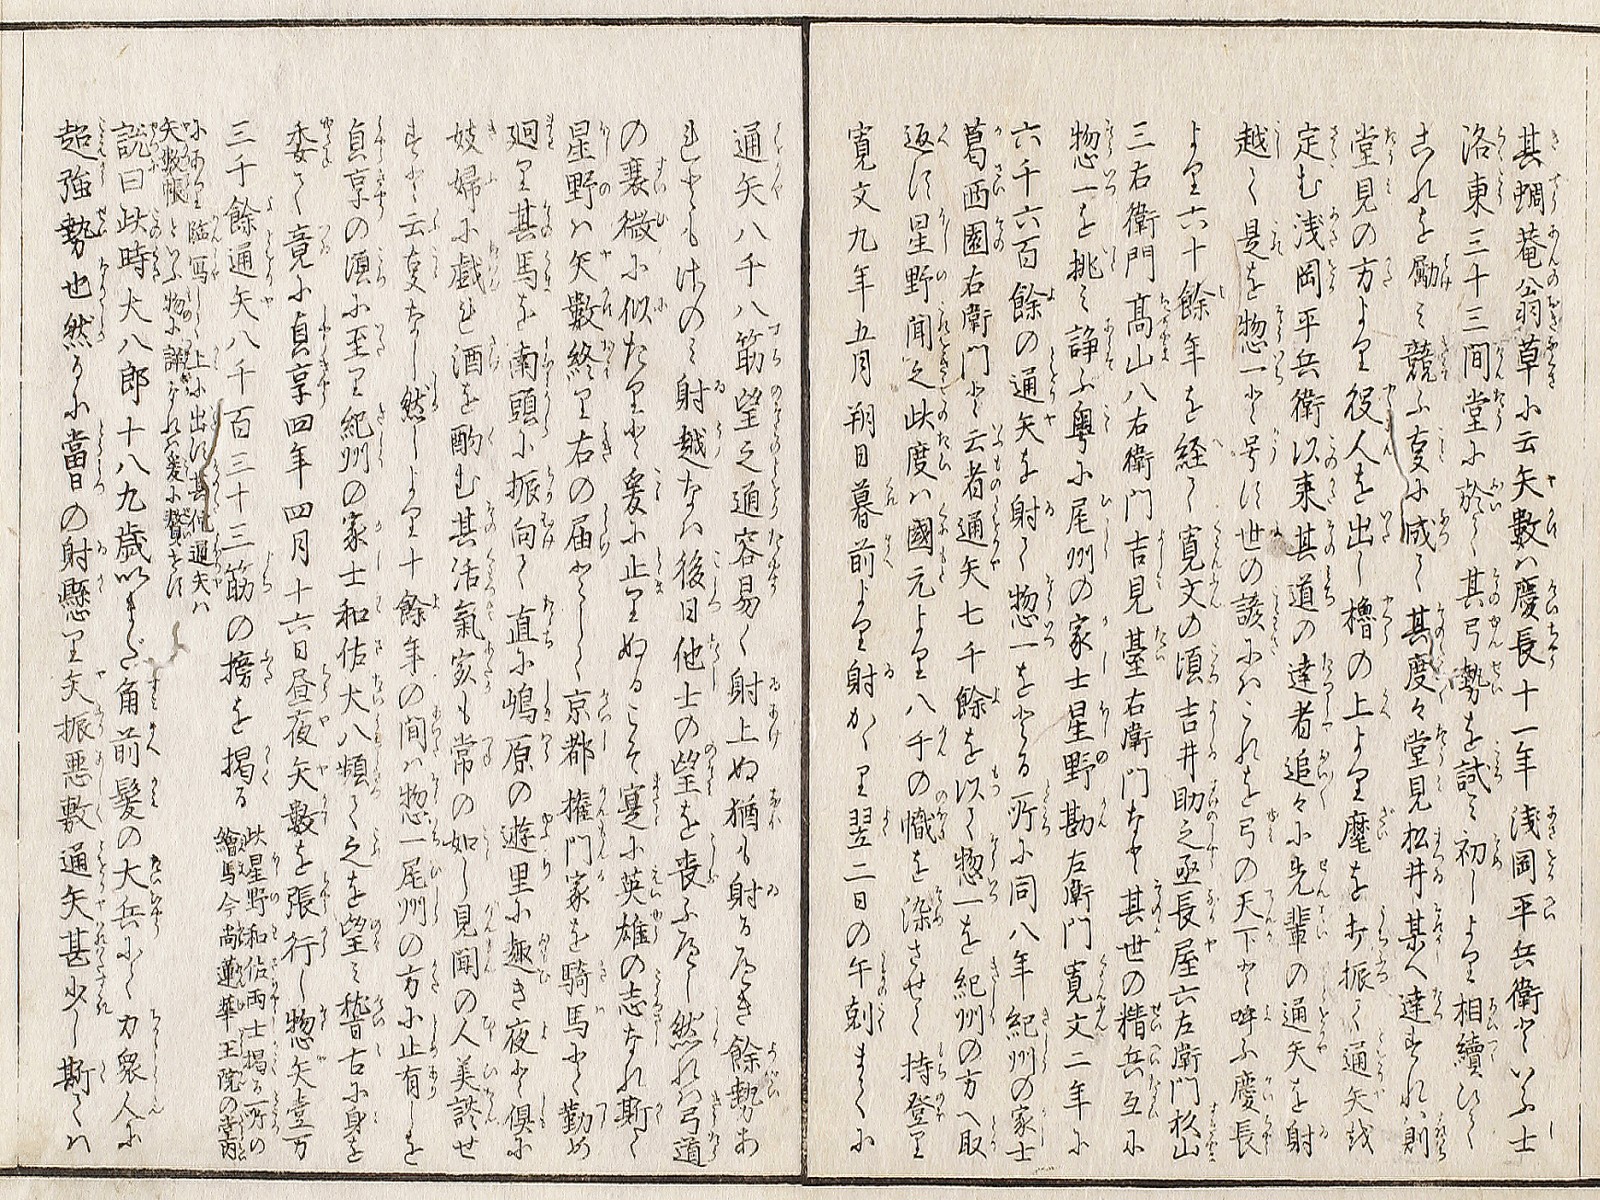 其蜩菴翁草に云矢數ハ慶長十一年淺岡平兵衛といふ士
洛東三十三間堂に於て其弓勢を試ミ初しより相續ひて
これを勵ミ競ふ事に成て其度々堂見松井某へ達すれハ則
堂見の方より役人を出し櫓の上より麾を打振て通矢を
定む淺岡平兵衛以来其道の達者追々に先輩の通矢を射
越て是を惣一と号す世の諺にハこれを弓の天下と呼ふ慶長
より六十餘年を経て寛文の頃吉井助之亟長屋六左衛門杉山
三右衛門髙山八右衛門吉見臺右衛門など其世の精兵互に
惣一を挑ミ諍ふ粤に尾州の家士星野勘左衛門寛文二年に
六千六百餘の通矢を射て惣一をとる所に同八年紀州の家士
葛西園右衛門と云者通矢七千餘を以て惣一を紀州の方へ取
返す星野聞之此度ハ國元より八千の幟を染させて持登り
寛文九年五月朔日暮前より射かゝり翌二日の午剋まてに
通矢八千八筋望之通容易く射上ぬ猶も射るへき餘勢あ
れとも此のミ射越なハ後日他士の望を喪ふへし然れハ弓道
の衰微に似たりと爰に止りぬるこそ寔に英雄の志なれ斯て
星野ハ矢數終り右の届として京都権門家を騎馬にて勤め
廻り其馬を南頭に振向て直に嶋原の遊里に趣き夜と倶に
妓婦に戲れ酒を酌む其活氣亥も常の如し見聞の人美談せ
すと云事なし然しより十餘年の間ハ惣一尾州の方に止有しを
貞享の頃に至り紀州の家士和佐大八頻て之を望ミ稽古に身を
委て竟に貞享四年四月十六日昼夜矢數を張行し惣矢壹万
三千餘通矢八千百三十三筋の搒を掲る
此星野和佐両士揭る所の
繪馬今尚蓮華王院の寺内
に有り臨寫して上に出す其他通矢ハ
矢數帳といふ物に譲けれハ爰に贅せす
説曰此時大八郎十八九歳いまだ角前髪の大兵にて力衆人に
超強勢也然るに當日の射懸り矢振悪敷通矢甚少し斯てハ